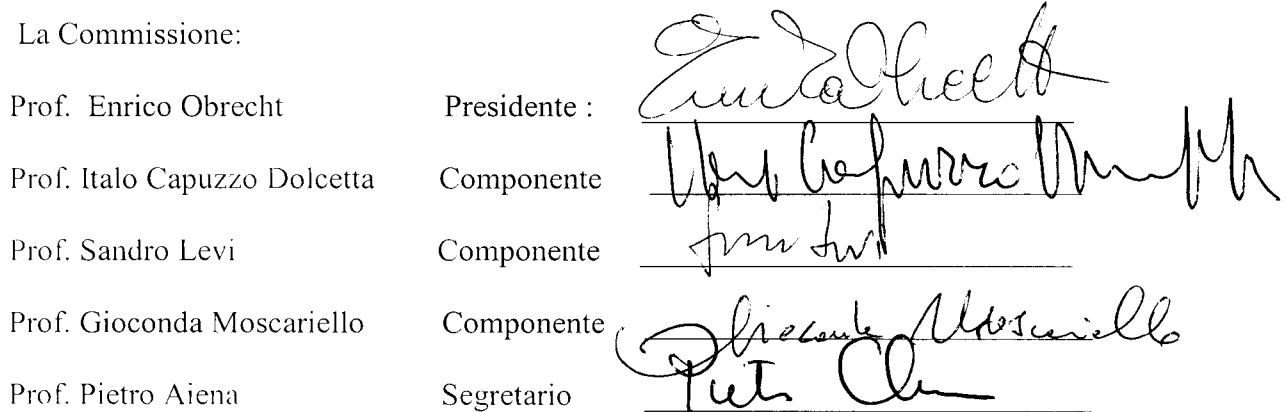 La Commissione:
Prof. Enrico Obrecht Presidente : Enrico Obrecht
Prof. Italo Capuzzo Dolcetta Componente Italo Capuzzo Dolcetta
Prof. Sandro Levi Componente Sandro Levi
Prof. Gioconda Moscariello Componente Gioconda Moscariello
Prof. Pietro Aiena Segretario Pietro Aiena